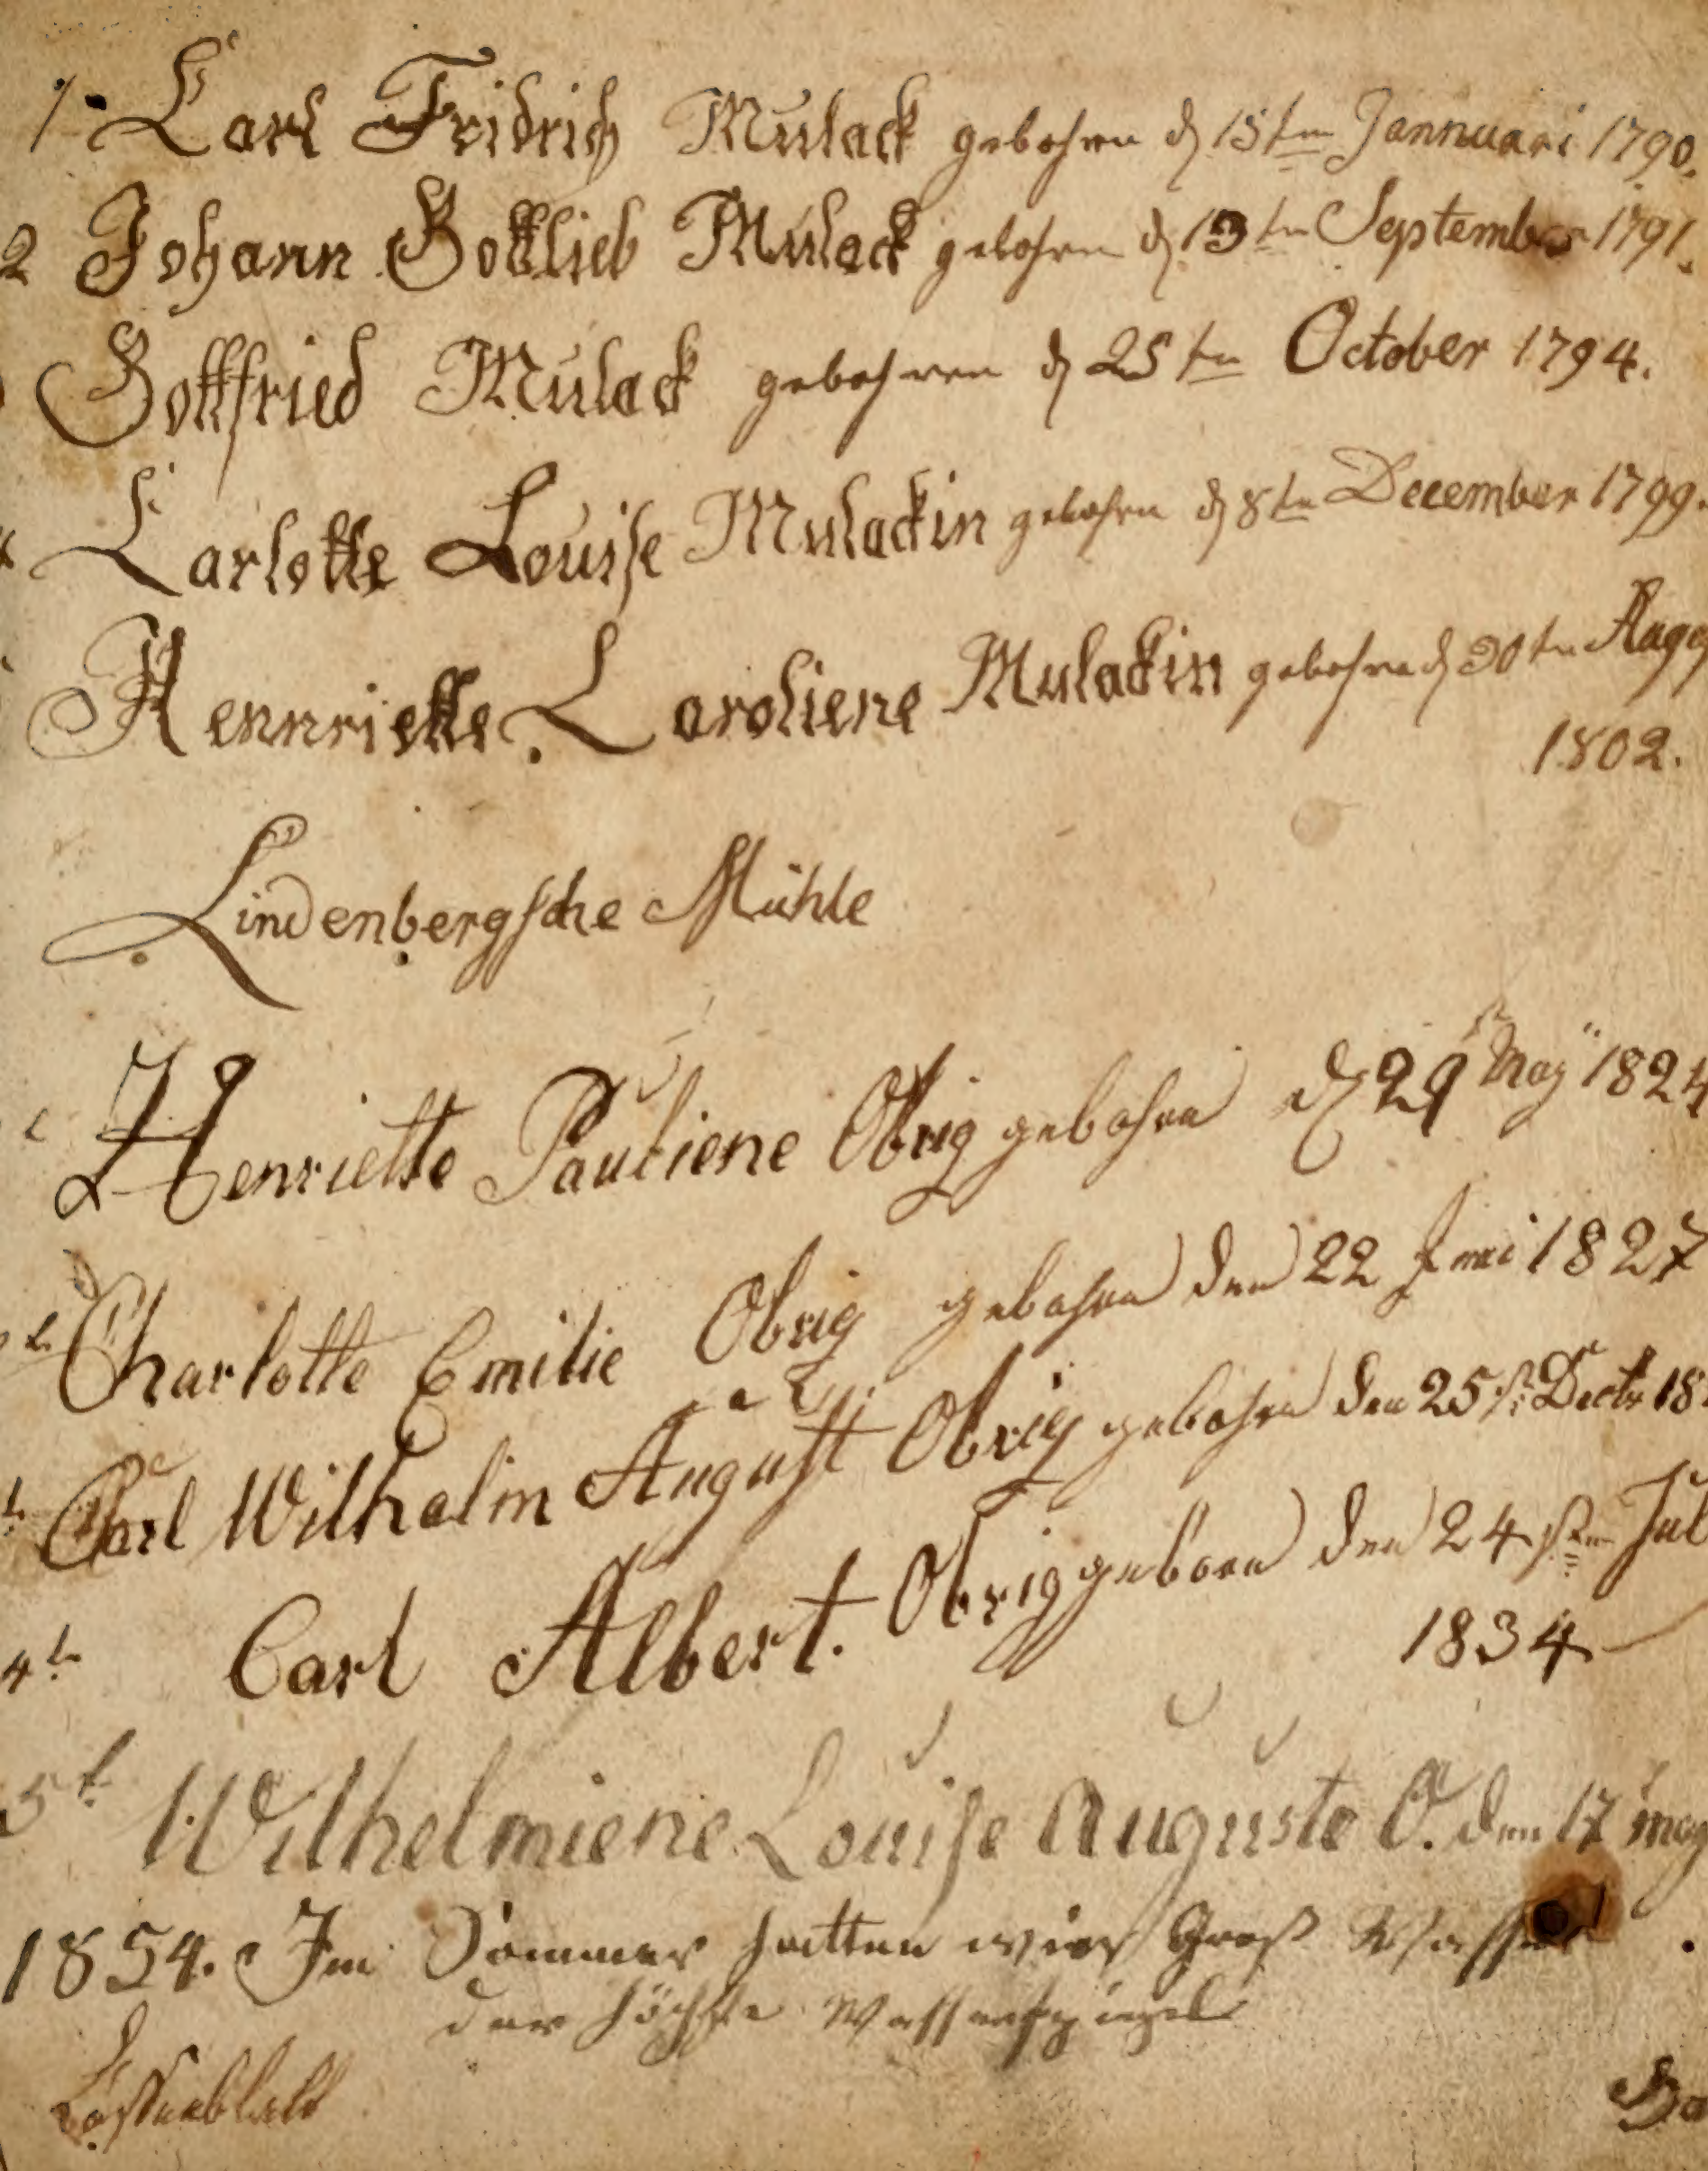 1. Carl Fridrich Mulack gebohren d 15ten Jannuari 1790.
2 Johann Gottlieb Mulack gebohren d 13ten September 1791.
Gottfried Mulack gebohren d 25ten October 1794.
Carlotte Louise Mulackin gebohren d 8ten December 1799.
Hennriette Caroliene Mulackin gebohren d 30ten Augg
1802.
Lindenbergsche Mühle
Henriette Pauliene Obrig gebohren d 29 May 1824
Charlotte Emilie Obrig gebohren den 22 Juni 1827
Carl Wilhelm August Obrig gebohren den 25st Decbr 18
4t. Carl Albert. Obrig geboren den 24sten Jul
1834
5t Wilhelmiene Louise Auguste O. den 17 may
1854. Im Sommer hatten wier Groß Wasser
der höchste Wasserspiegel